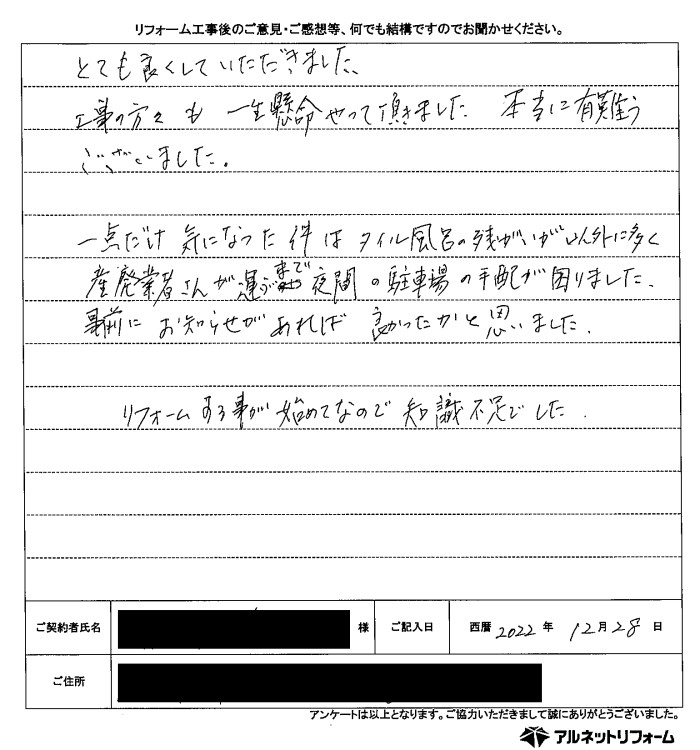 リフォーム工事後のご意見・ご感想等、何でも結構ですのでお聞かせください。
とても良くしていただきました、
工事の方々も 一生懸命やって頂きました 本当に有難う
ございました。
一点だけ 気になった件は タイル風呂の残がいが以外に多く
産廃業者さんが運ぶまで夜間の駐車場の手配が困りました、
事前に お知らせがあれば 良かったかと思いました.
リフォームする事が 始めてなので 知識不足でした.
ご契約者氏名 様 ご記入日 西暦 2022 年 12月 28 日
ご住所
アンケートは以上となります。ご協力いただきまして誠にありがとうございました。
アルネットリフォーム